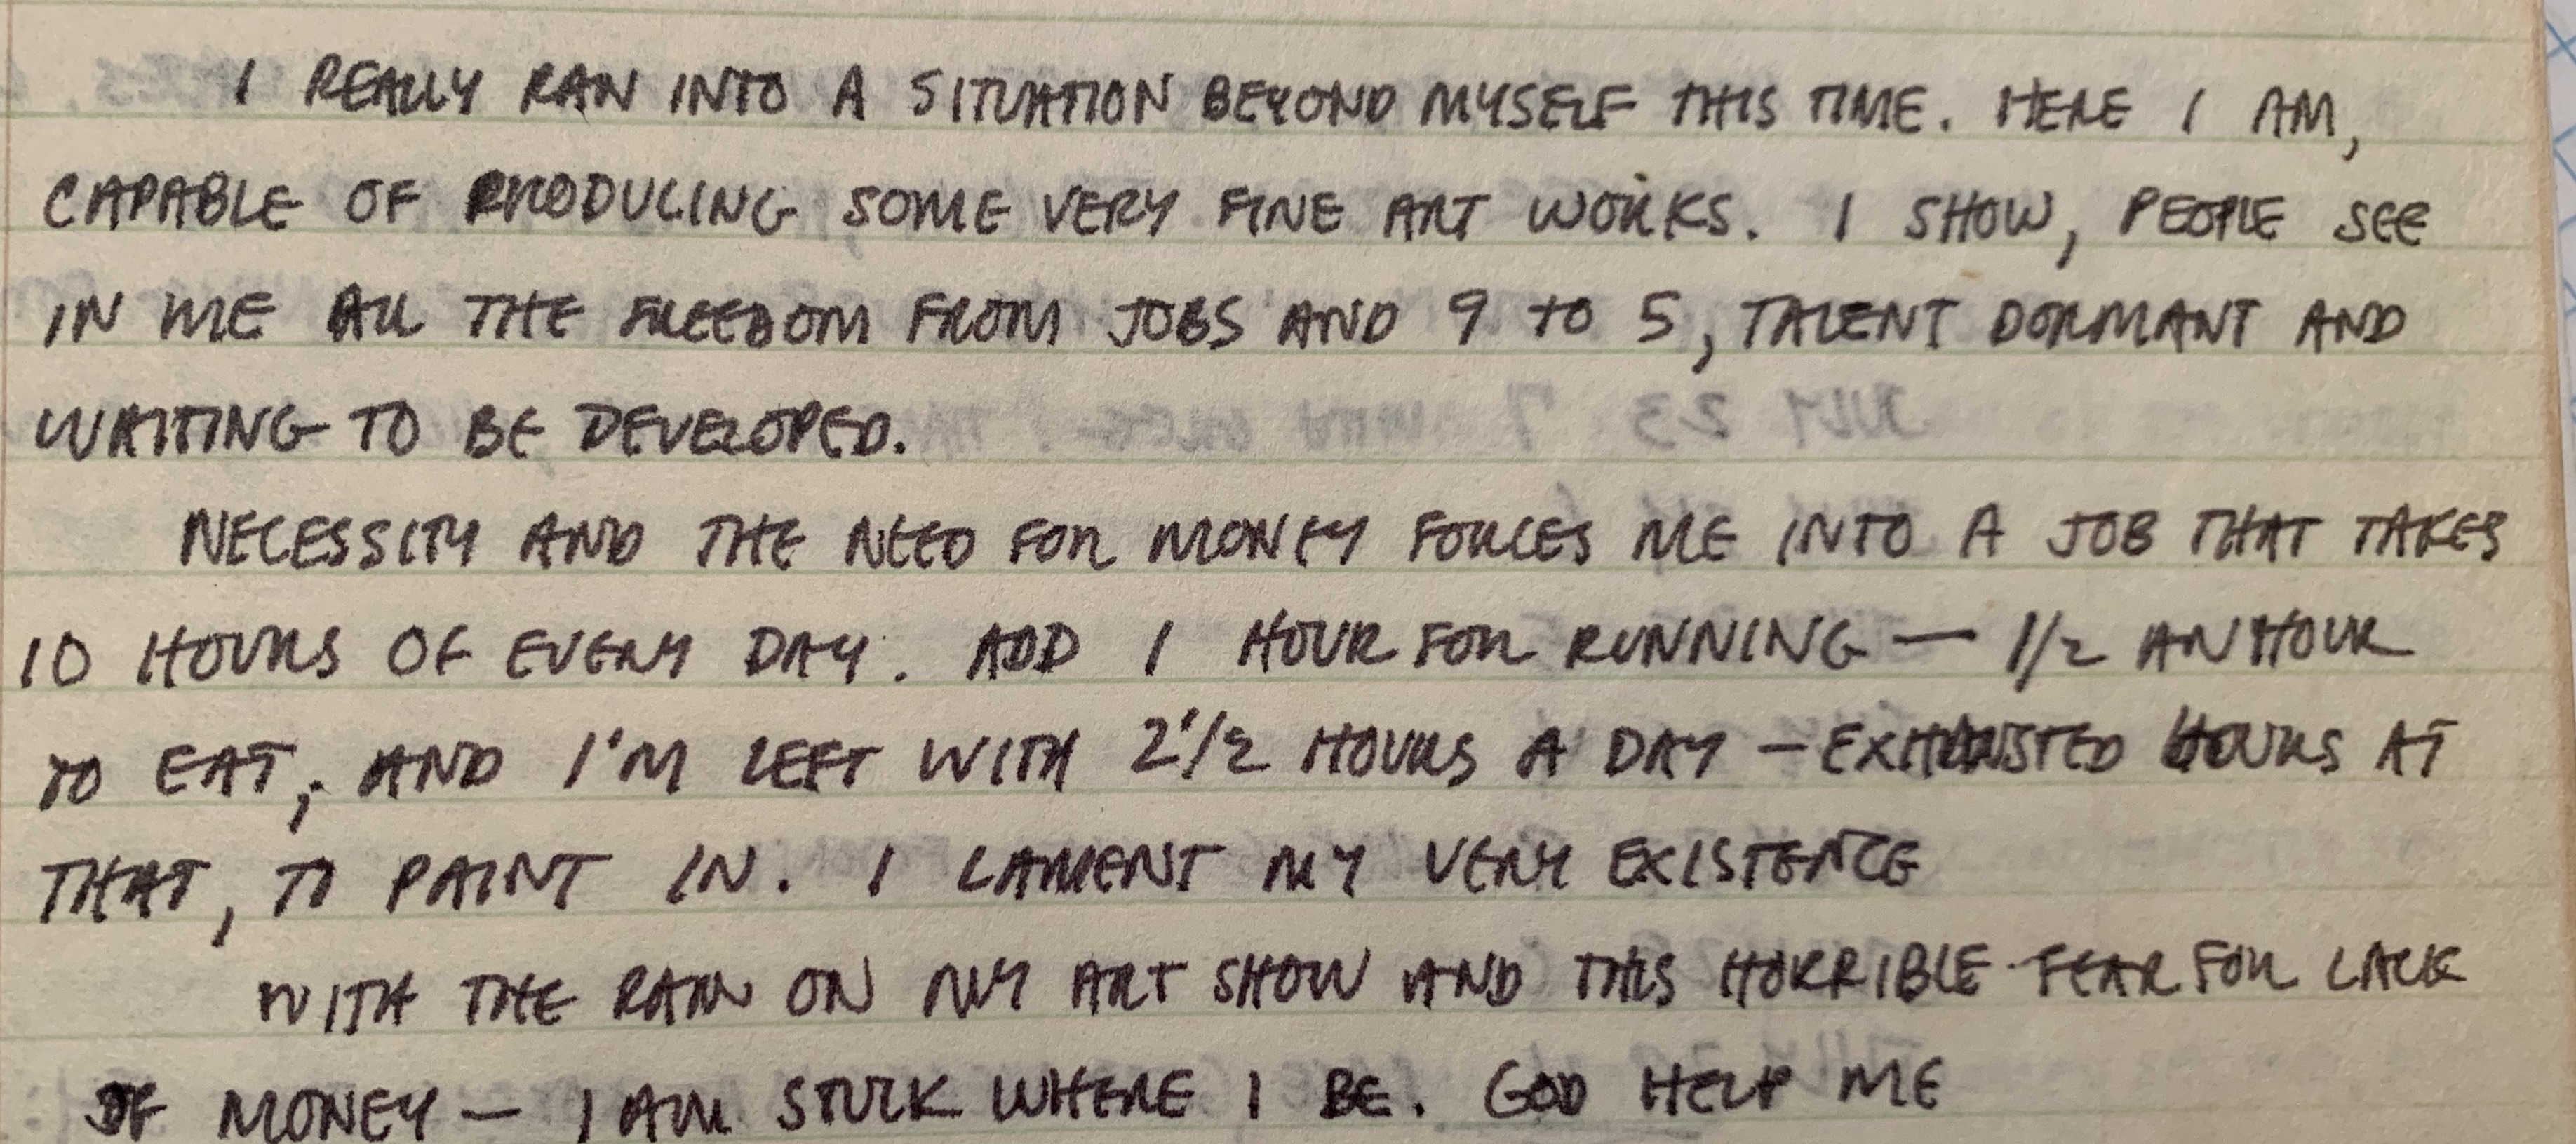 I REALLY RAN INTO A SITUATION BEYOND MYSELF THIS TIME. HERE I AM,
CAPABLE OF PRODUCING SOME VERY FINE ART WORKS. I SHOW, PEOPLE SEE
IN ME ALL THE FREEDOM FROM JOBS AND 9 TO 5, TALENT DORMANT AND
WAITING TO BE DEVELOPED.
NECESSITY AND THE NEED FOR MONEY FORCES ME INTO A JOB THAT TAKES
10 HOURS OF EVERY DAY. ADD 1 HOUR FOR RUNNING — 1/2 AN HOUR
TO EAT, AND I'M LEFT WITH 2 1/2 HOURS A DAY — EXHAUSTED HOURS AT
THAT, TO PAINT IN. I LAMENT MY VERY EXISTENCE
WITH THE RAIN ON MY ART SHOW AND THIS HORRIBLE FEAR FOR LACK
OF MONEY — I AM STUCK WHERE I BE. GOD HELP ME